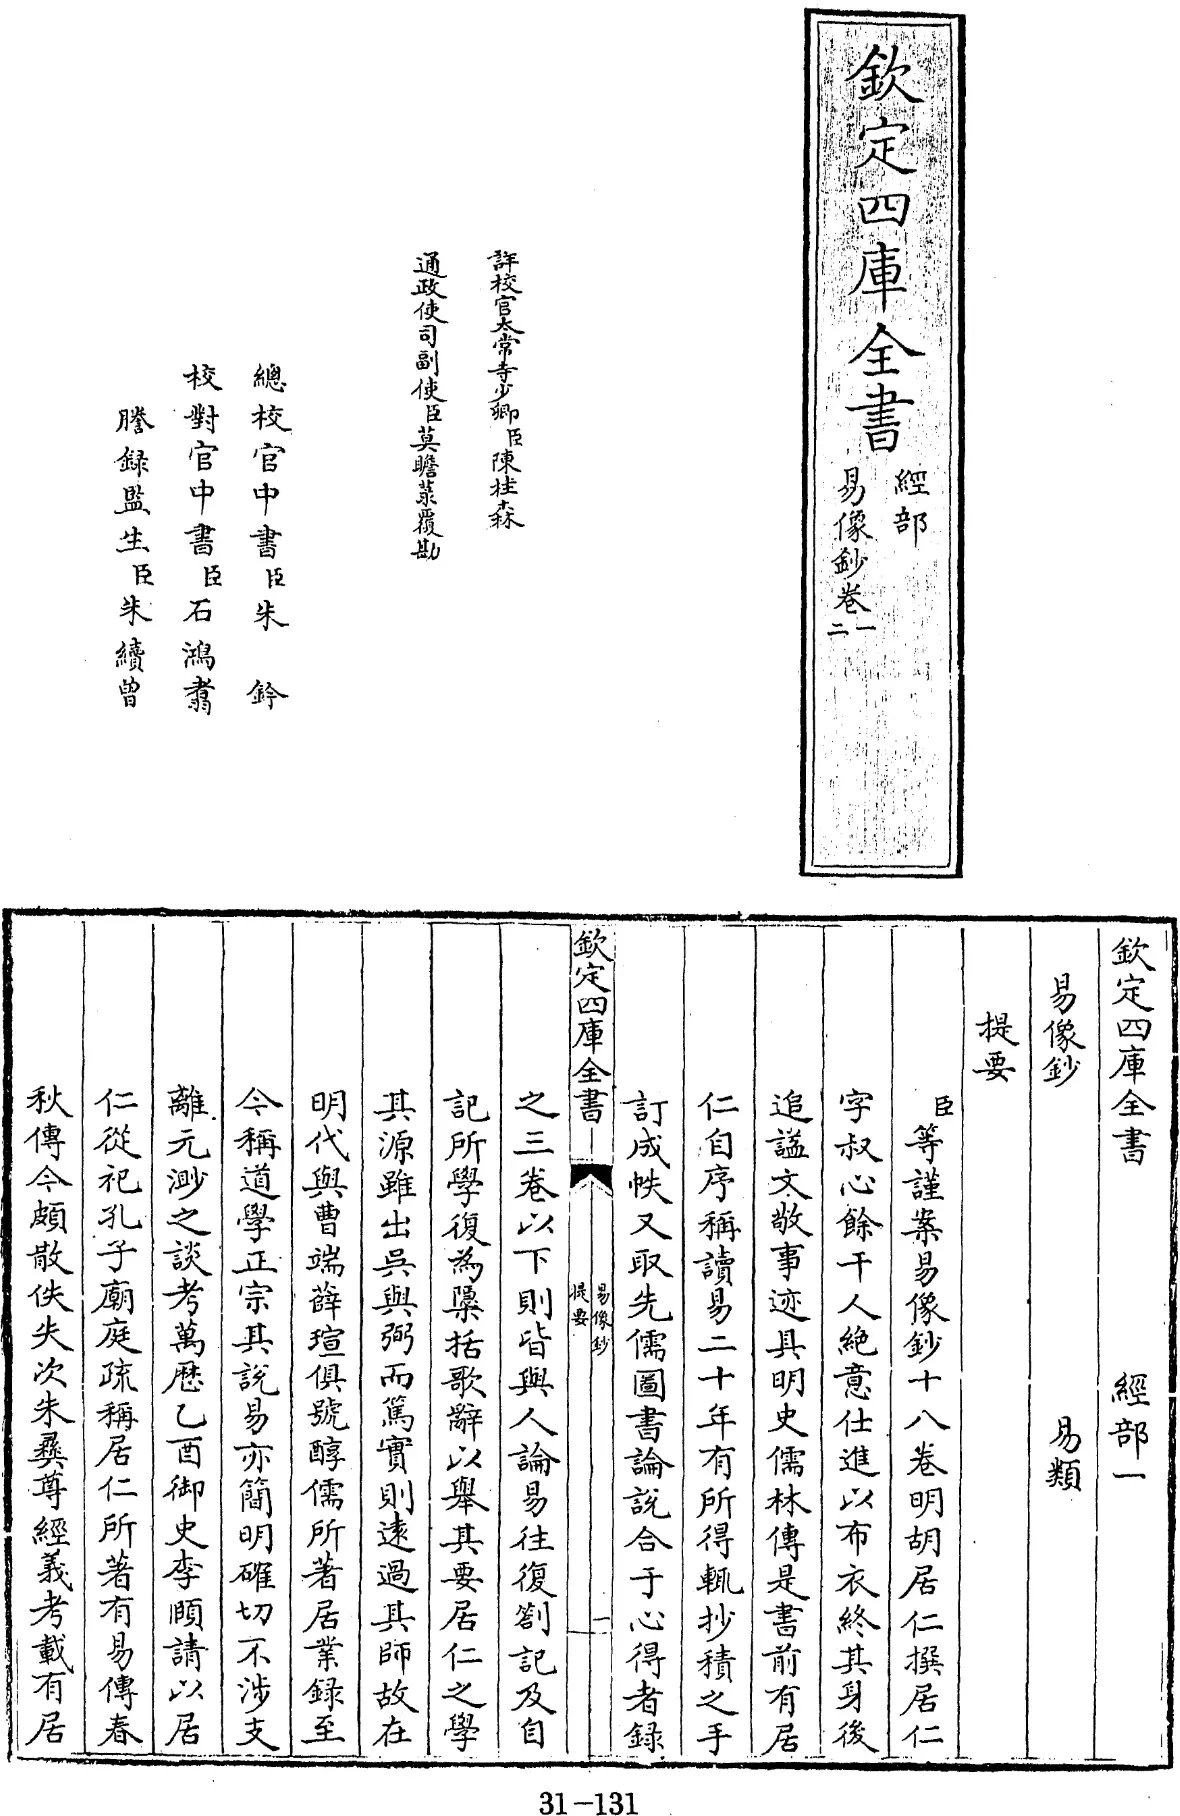 欽定四庫全書
經部
易像鈔卷一
二
詳校官太常寺少卿臣陳桂森
通政使司副使臣莫瞻菉覆勘
總校官中書臣朱鈐
校對官中書臣石鴻翥
謄録監生臣朱續曾
欽定四庫全書 經部一
易像鈔 易類
提要
臣等謹案易像鈔十八卷明胡居仁撰居仁
字叔心餘干人絶意仕進以布衣終其身後
追諡文敬事迹具明史儒林傳是書前有居
仁自序稱讀易二十年有所得輒抄積之手
訂成帙又取先儒圖書論説合于心得者録
欽定四庫全書
易像鈔
提要
一
之三卷以下則皆與人論易往復劄記及自
記所學復為檃括歌辭以舉其要居仁之學
其源雖出吳與弼而篤實則遠過其師故在
明代與曹端薛瑄俱號醇儒所著居業録至
今稱道學正宗其説易亦簡明確切不涉支
離元渺之談考萬歷乙酉御史李頤請以居
仁從祀孔子廟庭疏稱居仁所著有易傳春
秋傳今頗散佚失次朱彞尊經義考載有居
31-131